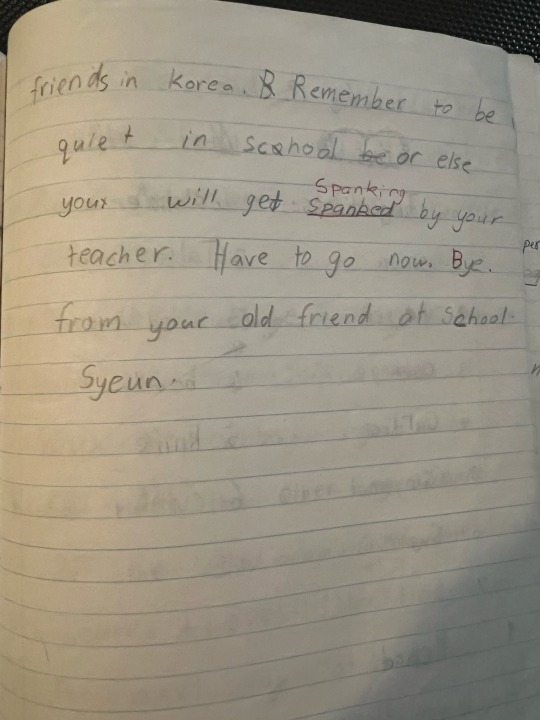 friends in Korea. & Remember to be
quiet in scqhool be or else
Spanking
your will get Spanked by your
teacher. Have to go now. Bye.
from your old friend at School.
Syeun.
per